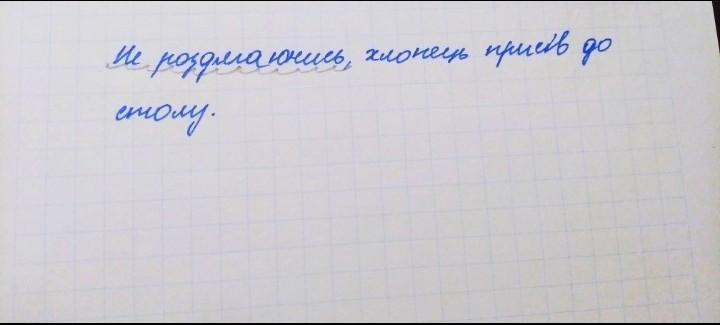 Не роздягаючись, хлопець присів до
столу.